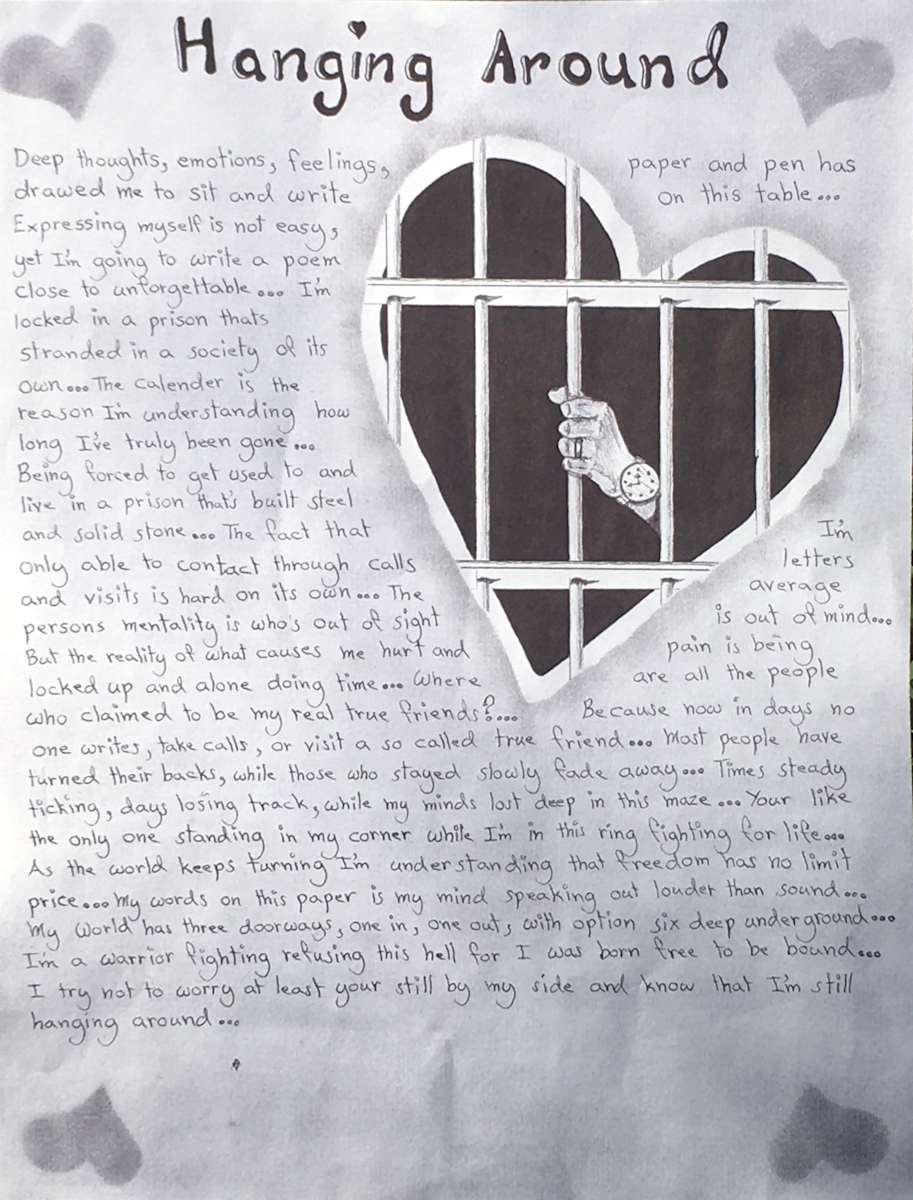 Hanging Around
Deep thoughts, emotions, feelings, paper and pen has
drawed me to sit and write on this table...
Expressing myself is not easy,
yet I'm going to write a poem
close to unforgettable... I'm
locked in a prison thats
stranded in a society of its
own... The calender is the
reason I'm understanding how
long I've truly been gone...
Being forced to get used to and
live in a prison that's built steel
and solid stone... The fact that I'm
only able to contact through calls letters
and visits is hard on its own... The average
persons mentality is who's out of sight is out of mind...
But the reality of what causes me hurt and pain is being
locked up and alone doing time... Where are all the people
who claimed to be my real true friends?... Because now in days no
one writes, take calls, or visit a so called true friend... Most people have
turned their backs, while those who stayed slowly fade away... Times steady
ticking, days losing track, while my minds lost deep in this maze... Your like
the only one standing in my corner while I'm in this ring fighting for life...
As the world keeps turning I'm understanding that freedom has no limit
price... My words on this paper is my mind speaking out louder than sound...
My world has three doorways, one in, one out, with option six deep underground...
I'm a warrior fighting refusing this hell for I was born free to be bound...
I try not to worry at least your still by my side and know that I'm still
hanging around...